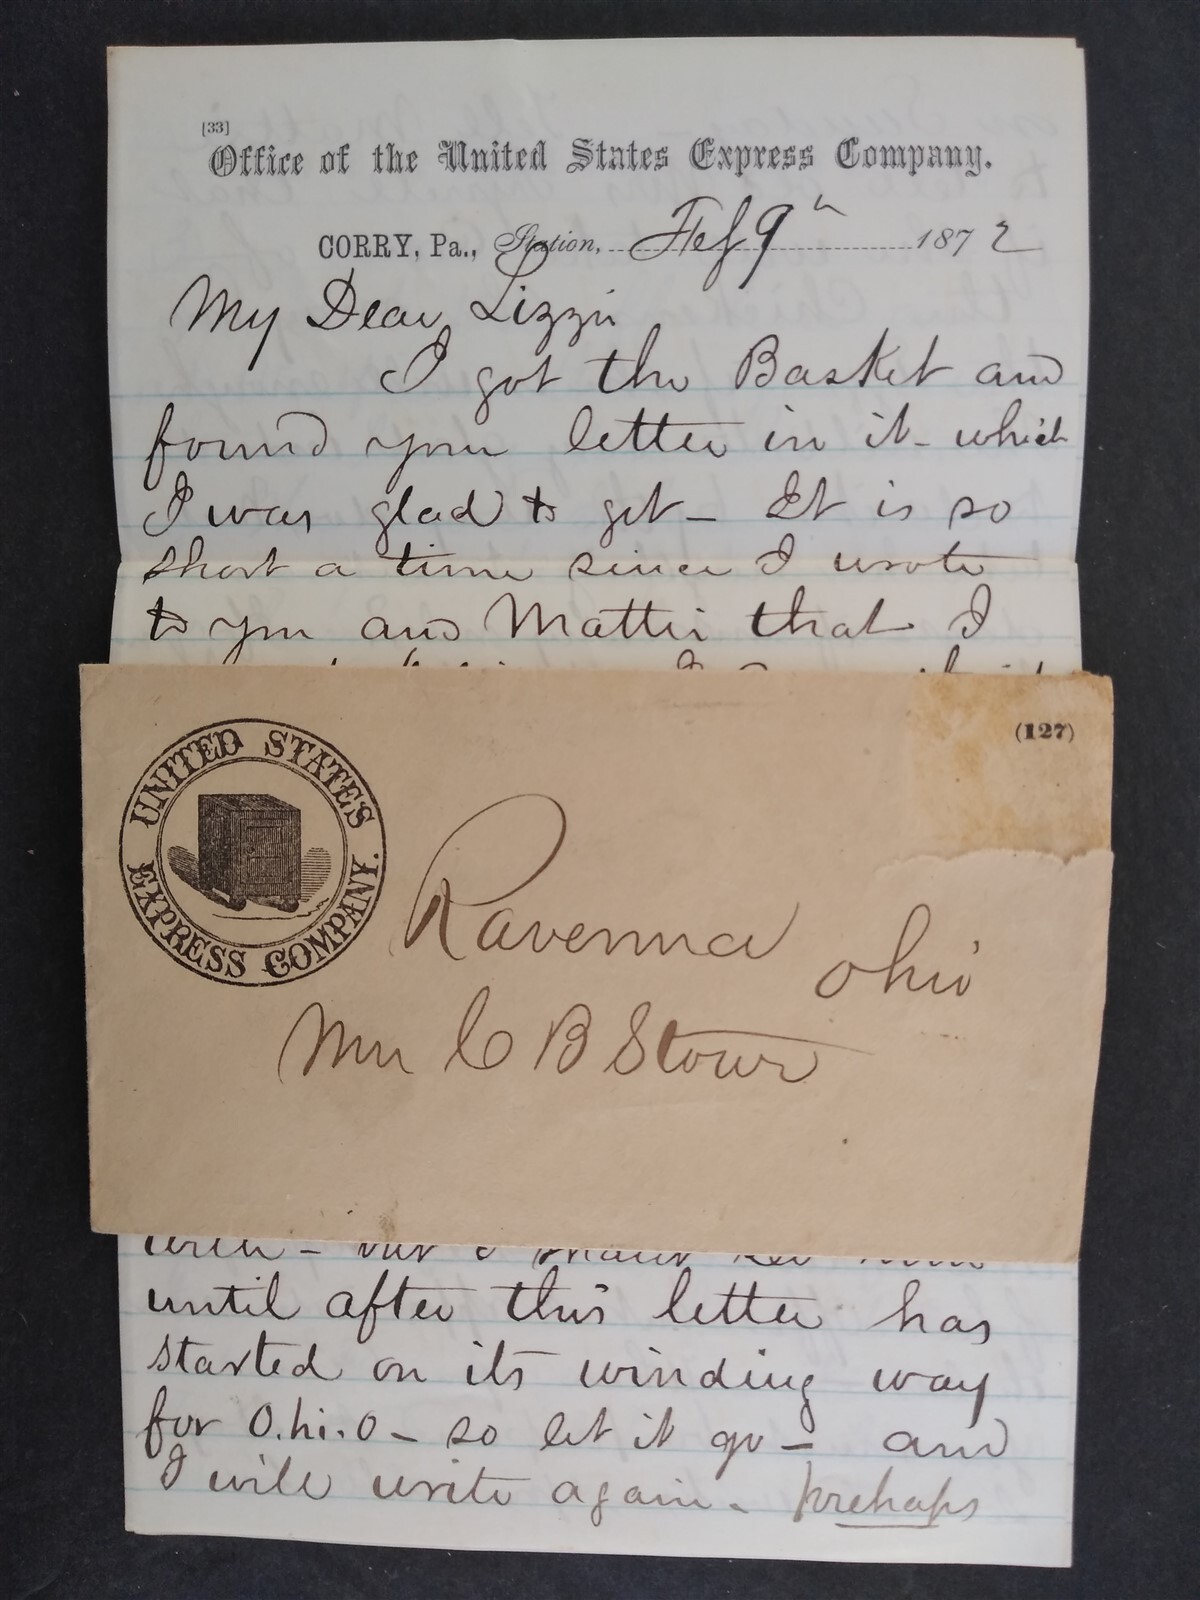 [33]
Office of the United States Express Company.
CORRY, Pa., Station, Feb 9th 1872
My Dear Lizzie
I got the Basket and
found your letter in it - which
I was glad to get - It is so
short a time since I wrote
to you and Mattie that I
(127)
UNITED STATES
EXPRESS COMPANY.
Ravenna
Ohio
C B Stowe
until after this letter has
started on its winding way
for O.hi.o - so let it go - and
I will write again - prehaps